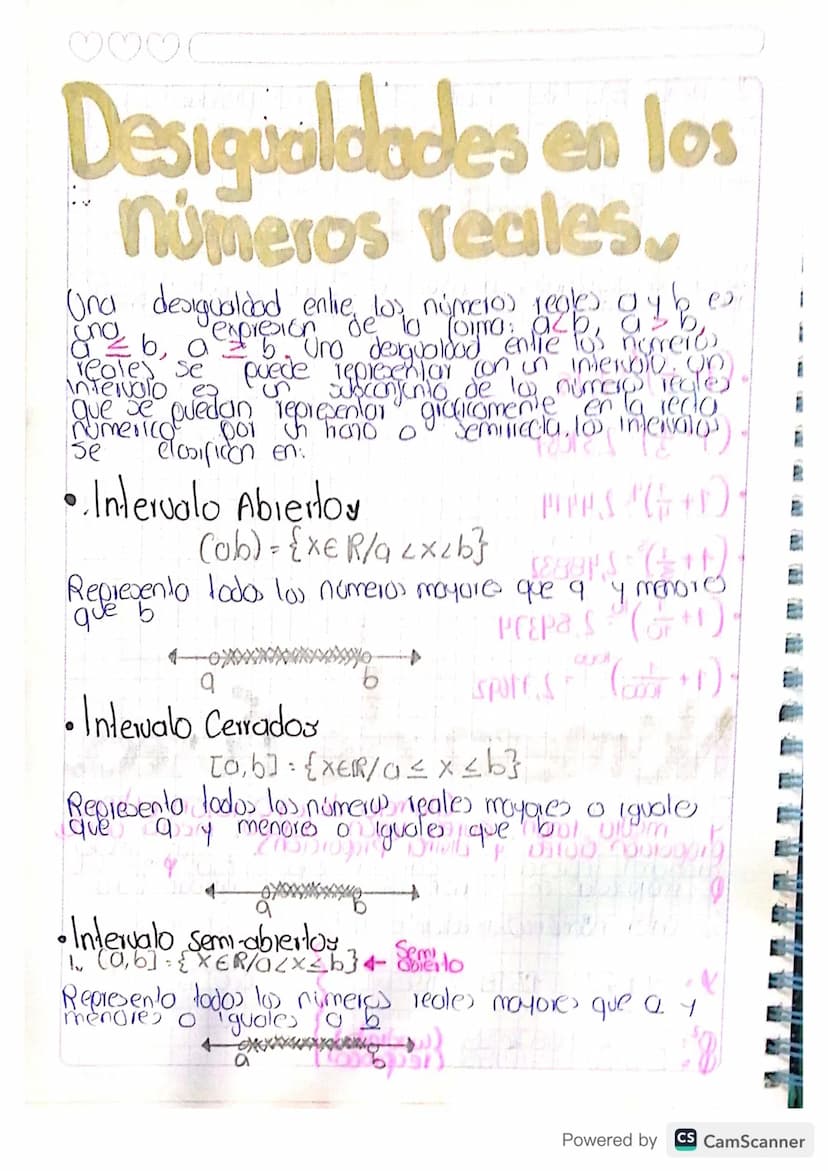 Desigualdades en los
números reales.
Una desigualdad entre los números reales a y b es
una expresión de la forma: a<b, a>b,
a ≤ b, a ≥ b. Una desigualdad entre los números
reales se puede representar con un intervalo. Un
intervalo es un subconjunto de los números reales
que se puedan representar gráficamente en la recta
númerica por un trazo o semirrecta, los intervalos
se clasifican en:
• Intervalo Abierto
(ab) = {x∈R/a<x<b}
Representa todos los números mayores que a y menores
que b
a b
• Intervalo Cerrados
[a,b] = {x∈R/a ≤ x ≤ b}
Representa todos los números reales mayores o iguales
que a y menores o iguales que b
a b
• Intervalo Semi-abiertos
1. (a,b] = {x∈R/a<x≤b} ← Semi
abierto
Representa todos los números reales mayores que a y
menores o iguales a b
a b
Powered by CS CamScanner